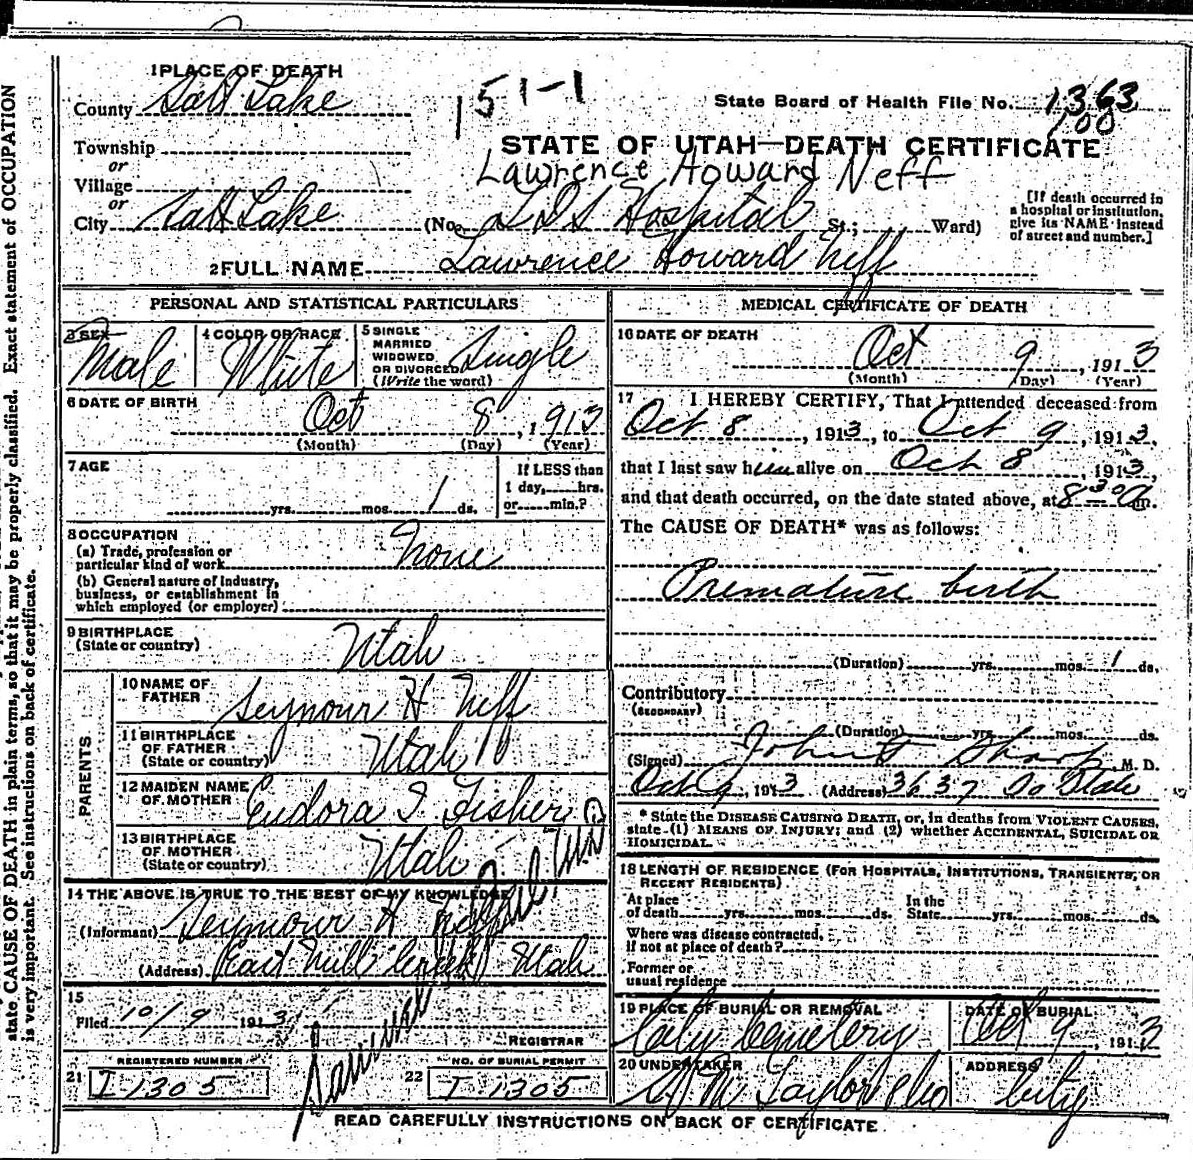 state CAUSE OF DEATH in plain terms, so that it may be properly classified. Exact statement of OCCUPATION
is very important. See instructions on back of certificate.
1 PLACE OF DEATH
County Salt Lake
151-1
State Board of Health File No. 1363
100
Township
or
Village
or
City Salt Lake
STATE OF UTAH—DEATH CERTIFICATE
Lawrence Howard Neff
(No. LDS Hospital St.; Ward)
[If death occurred in
a hospital or institution,
give its NAME instead
of street and number.]
2 FULL NAME Lawrence Howard Neff
PERSONAL AND STATISTICAL PARTICULARS
3 SEX
Male
4 COLOR OR RACE
White
5 SINGLE
MARRIED
WIDOWED
OR DIVORCED
(Write the word)
Single
6 DATE OF BIRTH
Oct 8, 1913
(Month) (Day) (Year)
7 AGE
yrs. mos. 1 ds.
If LESS than
1 day, hrs.
or min.?
8 OCCUPATION
(a) Trade, profession or
particular kind of work None
(b) General nature of industry,
business, or establishment in
which employed (or employer)
9 BIRTHPLACE
(State or country) Utah
PARENTS
10 NAME OF
FATHER Seymour H Neff
11 BIRTHPLACE
OF FATHER
(State or country) Utah
12 MAIDEN NAME
OF MOTHER Eudora I Fisher
13 BIRTHPLACE
OF MOTHER
(State or country) Utah
14 THE ABOVE IS TRUE TO THE BEST OF MY KNOWLEDGE
(Informant) Seymour H Neff
(Address) East Mill Creek Utah
15
Filed 10/9 1913
REGISTRAR
REGISTERED NUMBER
21 I-1305
NO. OF BURIAL PERMIT
22 I-1305
MEDICAL CERTIFICATE OF DEATH
16 DATE OF DEATH
Oct 9, 1913
(Month) (Day) (Year)
17 I HEREBY CERTIFY, That I attended deceased from
Oct 8, 1913, to Oct 9, 1913,
that I last saw him alive on Oct 8, 1913,
and that death occurred, on the date stated above, at 8 30 a m.
The CAUSE OF DEATH* was as follows:
Premature birth
(Duration) yrs. mos. 1 ds.
Contributory
(SECONDARY)
(Duration) yrs. mos. ds.
(Signed) John F Sharp, M. D.
Oct 9, 1913 (Address) 3637 So State
* State the DISEASE CAUSING DEATH, or, in deaths from VIOLENT CAUSES,
state (1) MEANS OF INJURY; and (2) whether ACCIDENTAL, SUICIDAL OR
HOMICIDAL.
18 LENGTH OF RESIDENCE (FOR HOSPITALS, INSTITUTIONS, TRANSIENTS, OR
RECENT RESIDENTS)
At place
of death yrs. mos. ds.
In the
State yrs. mos. ds.
Where was disease contracted,
if not at place of death?
Former or
usual residence
19 PLACE OF BURIAL OR REMOVAL
City Cemetery
DATE OF BURIAL
Oct 9, 1913
20 UNDERTAKER
S. M. Taylor & Co
ADDRESS
City
READ CAREFULLY INSTRUCTIONS ON BACK OF CERTIFICATE